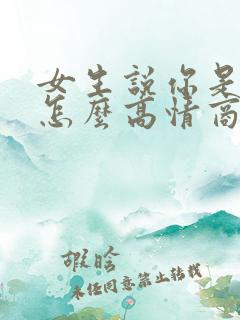 女生說你是
怎麼高情商
暇晗
未经同意禁止转载